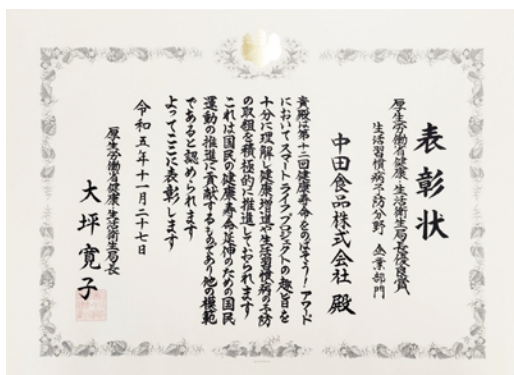 表彰状
厚生労働省健康・生活衛生局長優良賞
生活習慣病予防分野 企業部門
中田食品株式会社 殿
貴殿は第十二回健康寿命をのばそう!アワード
においてスマートライフプロジェクトの趣旨を
十分に理解し健康増進や生活習慣病の予防
の取組を積極的に推進しておられます
これは国民の健康寿命延伸のための国民
運動の推進に貢献するものであり他の模範
であると認められます
よってここに表彰します
令和五年十一月二十七日
厚生労働省健康・生活衛生局長
大坪寛子